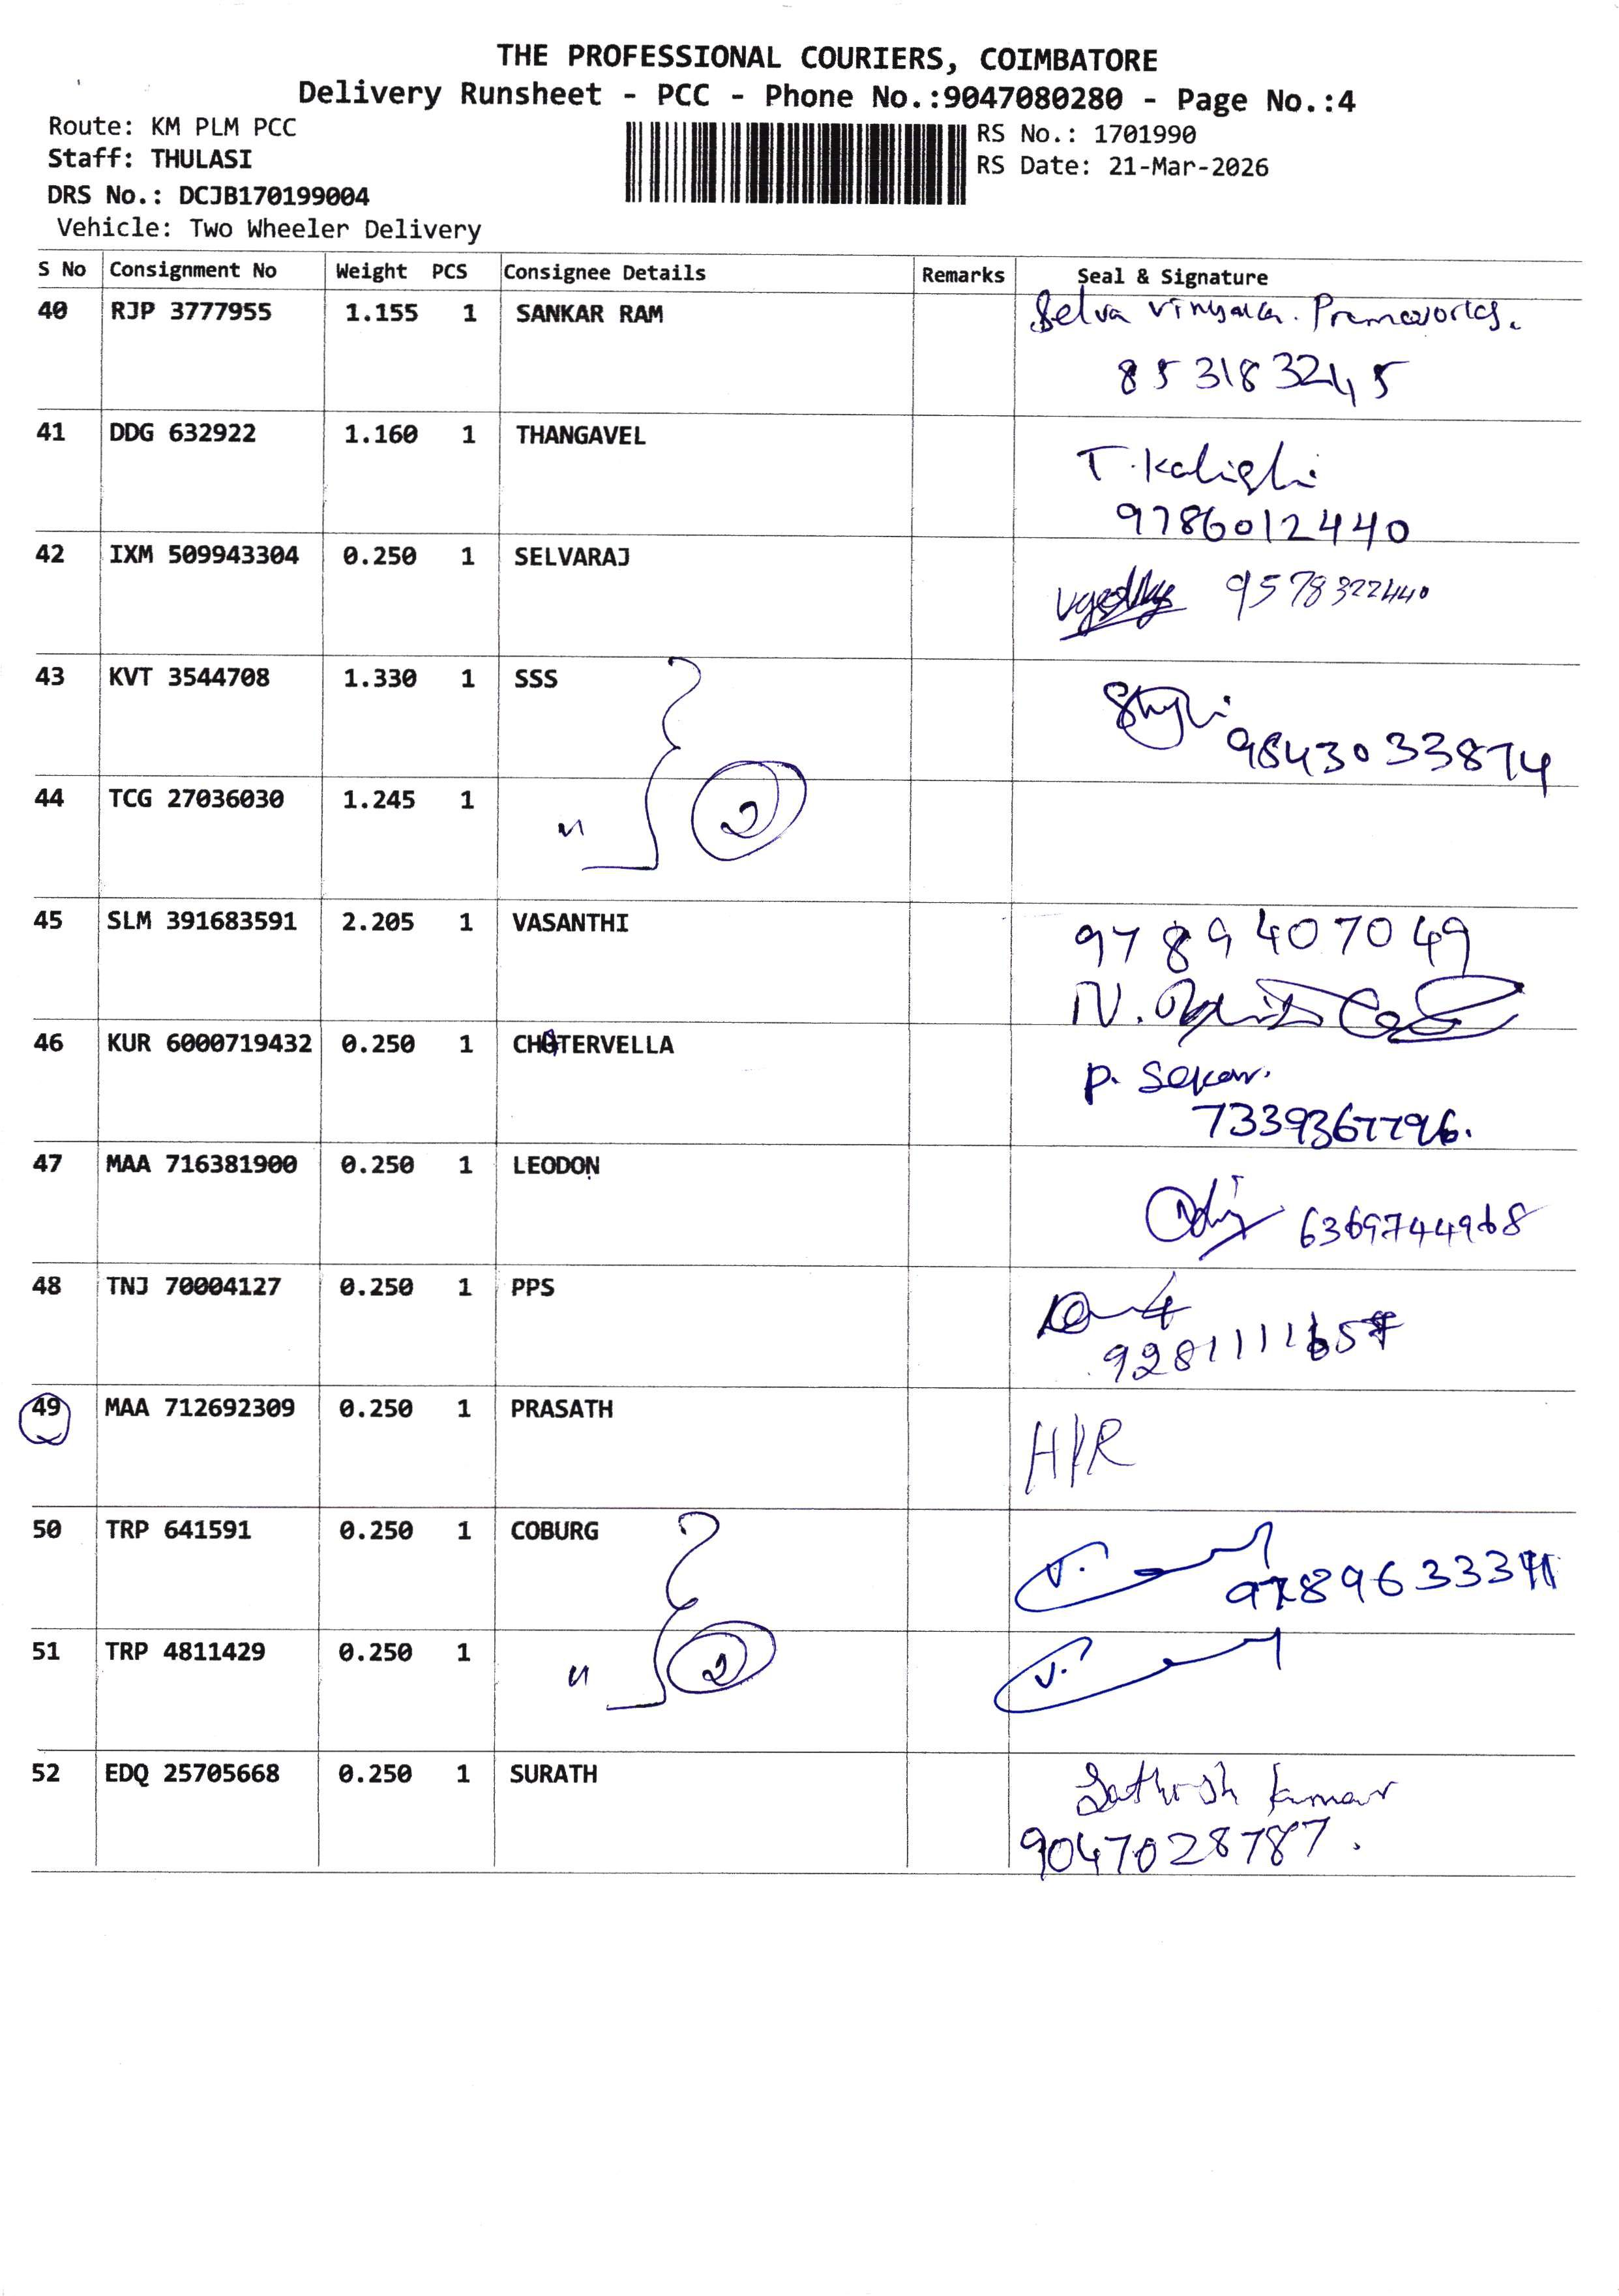 THE PROFESSIONAL COURIERS, COIMBATORE
Delivery Runsheet - PCC - Phone No.:9047080280 - Page No.:4
Route: KM PLM PCC
RS No.: 1701990
Staff: THULASI
RS Date: 21-Mar-2026
DRS No.: DCJB170199004
Vehicle: Two Wheeler Delivery
S No Consignment No Weight PCS Consignee Details Remarks Seal & Signature
40 RJP 3777955 1.155 1 SANKAR RAM Selva
853183245
41 DDG 632922 1.160 1 THANGAVEL
9786012440
42 IXM 509943304 0.250 1 SELVARAJ 9578322440
43 KVT 3544708 1.330 1 SSS
9843033874
44 TCG 27036030 1.245 1 " 2
45 SLM 391683591 2.205 1 VASANTHI 9789407049
46 KUR 6000719432 0.250 1 P. Sekar.
7339367796.
47 MAA 716381900 0.250 1 LEODON
6369744968
48 TNJ 70004127 0.250 1 PPS
49 MAA 712692309 0.250 1 PRASATH
50 TRP 641591 0.250 1 COBURG V.
51 TRP 4811429 0.250 1 " 2 V.
52 EDQ 25705668 0.250 1 SURATH Sathish kumar
9047028787.